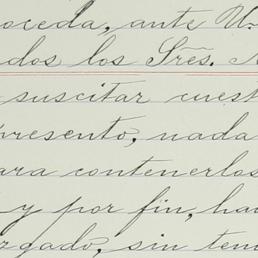 oceda, ante U.
dos los Sres.
suscitar cuest
presento, nada
ara contenerlos
y por fin, hac
zgado, sin tem